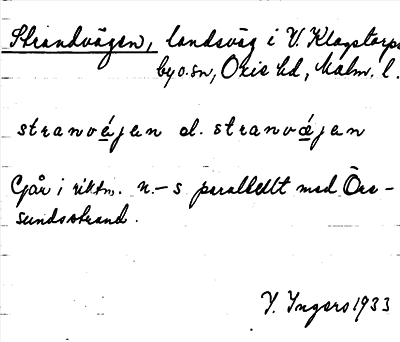 Strandvägen, landsväg i V. Klagstorps
by o. sn, Oxie hd, Malm. l.
stranvéjen el. stranvǽjen
Går i riktn. n.–s parallellt med Öre-
sundsstrand.
V. Ingers 1933